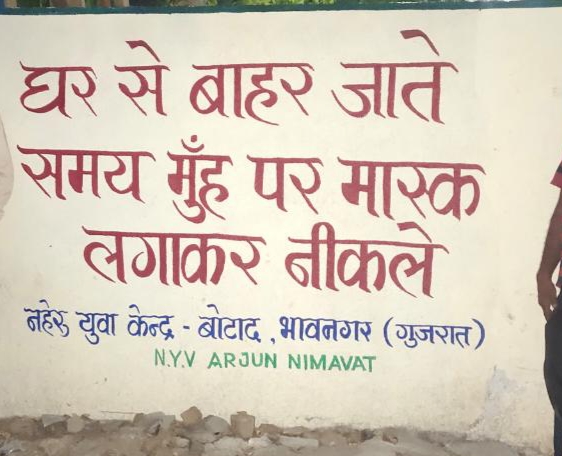 घर से बाहर जाते
समय मुँह पर मास्क
लगाकर नीकले
नहेरु युवा केन्द्र - बोटाद, भावनगर (गुजरात)
N.Y.V ARJUN NIMAVAT